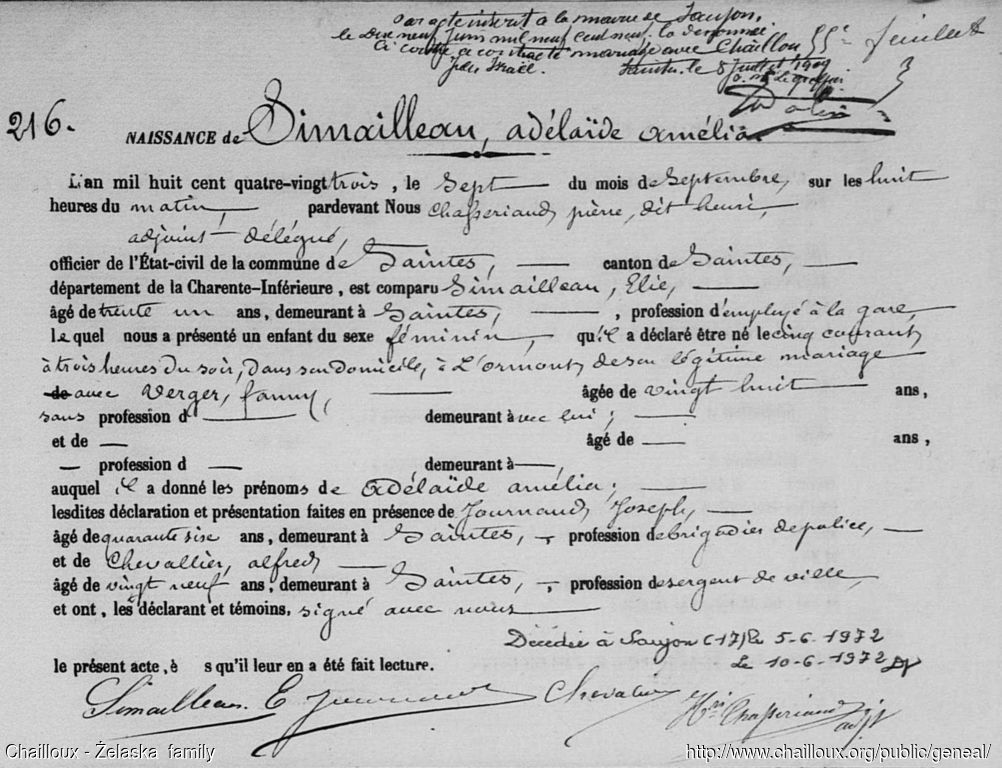 Par acte inscrit à la mairie de Saujon,
le Dix neuf Juin mil neuf cent neuf. la dénommée
Ci contre a contracté mariage avec Chailloux
Jules Israël. Saintes, le 8 Juillet 1909
55e feuillet
216.
NAISSANCE de Simailleau, adélaïde amélia
L'an mil huit cent quatre-vingt trois, le Sept du mois de Septembre, sur les huit
heures du matin, pardevant Nous Chasseriaud, pierre, dit henri,
adjoint délégué,
officier de l'État-civil de la commune de Saintes, canton de Saintes,
département de la Charente-Inférieure, est comparu Simailleau, Elie,
âgé de trente un ans, demeurant à Saintes, , profession d'employé à la gare,
lequel nous a présenté un enfant du sexe féminin, qu'il a déclaré être né le cinq courant
à trois heures du soir, dans son domicile, à L'ormont, de son légitime mariage
de avec Verger, fanny, âgée de vingt huit ans,
sans profession d demeurant à vec lui ;
et de — âgé de — ans,
— profession d — demeurant à —,
auquel il a donné les prénoms de adélaïde amélia;
lesdites déclaration et présentation faites en présence de Journaud, Joseph,
âgé de quarante six ans, demeurant à Saintes, , profession de brigadier de police,
et de Chevallier, alfred
âgé de vingt neuf ans, demeurant à Saintes, , profession de sergent de ville,
et ont, les déclarant et témoins, signé avec nous
Décédée à Saujon (17) le 5-6-1972
le présent acte, è s qu'il leur en a été fait lecture.
Le 10-6-1972
Simailleau E Journaud Chevalier Hri Chasseriaud adjt
Chailloux - Żelaska family
http://www.chailloux.org/public/geneal/